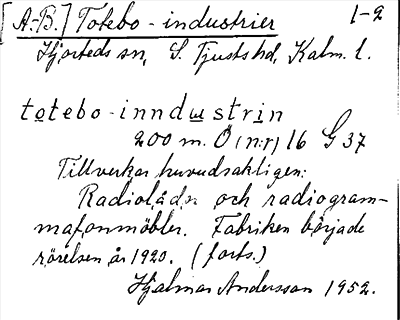 [A.-B.] Totebo-industrier 1-2
Hjorteds sn, S. Tjusts hd, Kalm. l.
totebo-inndustrin
200 m. Ö (n:r) 16 G 37
Tillverkar huvudsakligen:
Radiolådor och radiogram-
mafonmöbler. Fabriken började
rörelsen år 1920. (forts.)
Hjalmar Andersson 1952.